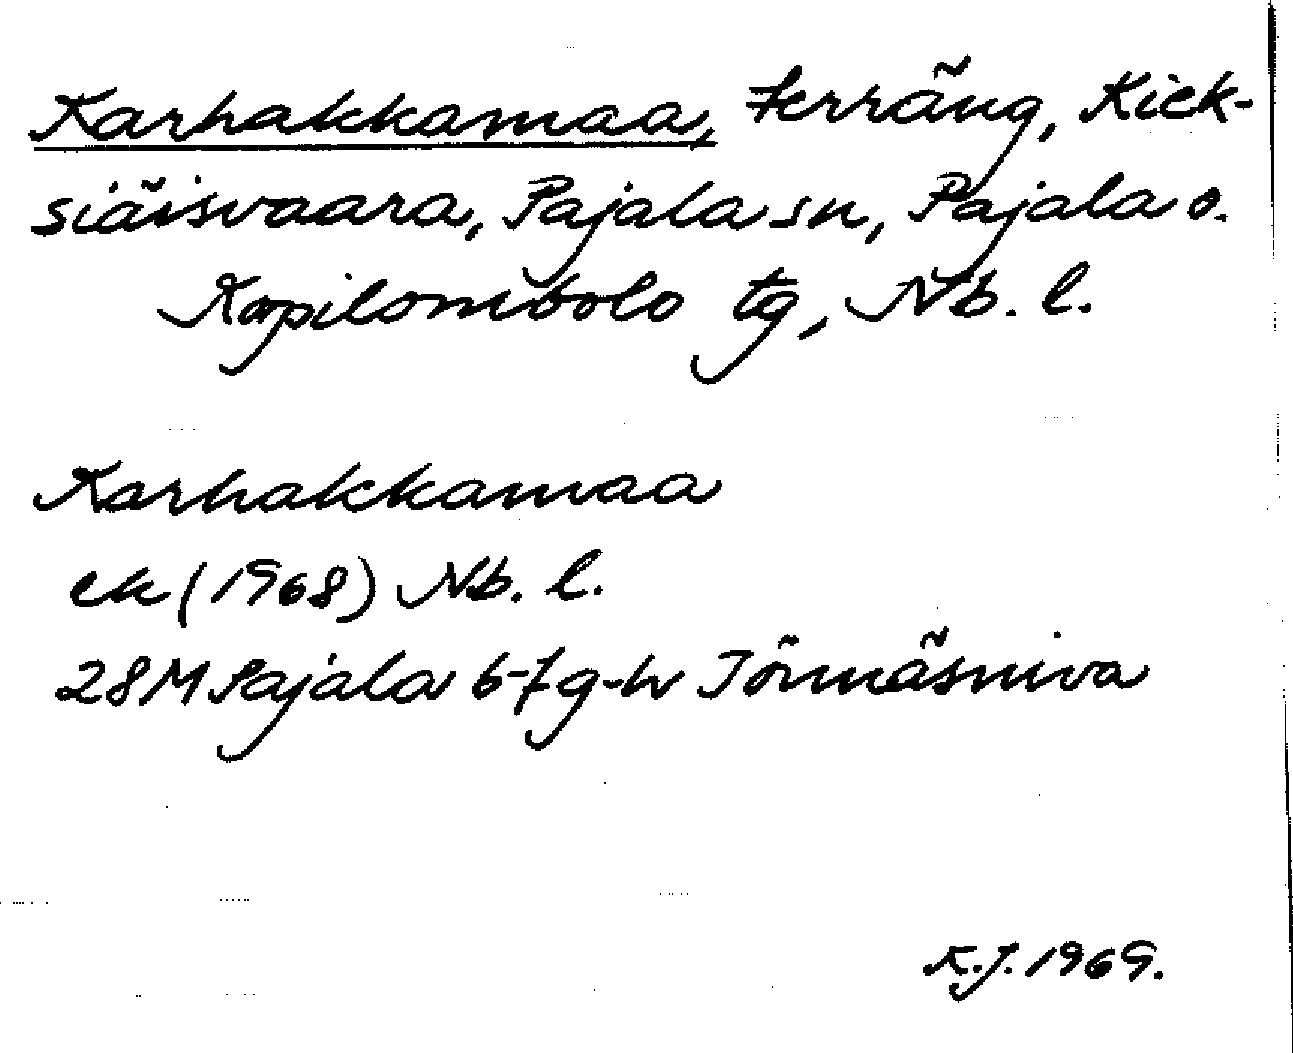 Karhakkamaa, Terräng, Kiek-
siäisvaara, Pajala sn, Pajala o.
Korpilombolo tg, Nb. l.
Karhakkamaa
ek (1968) Nb. l.
28M Pajala 6-7g-h Jönmäsniva
K.J. 1969.